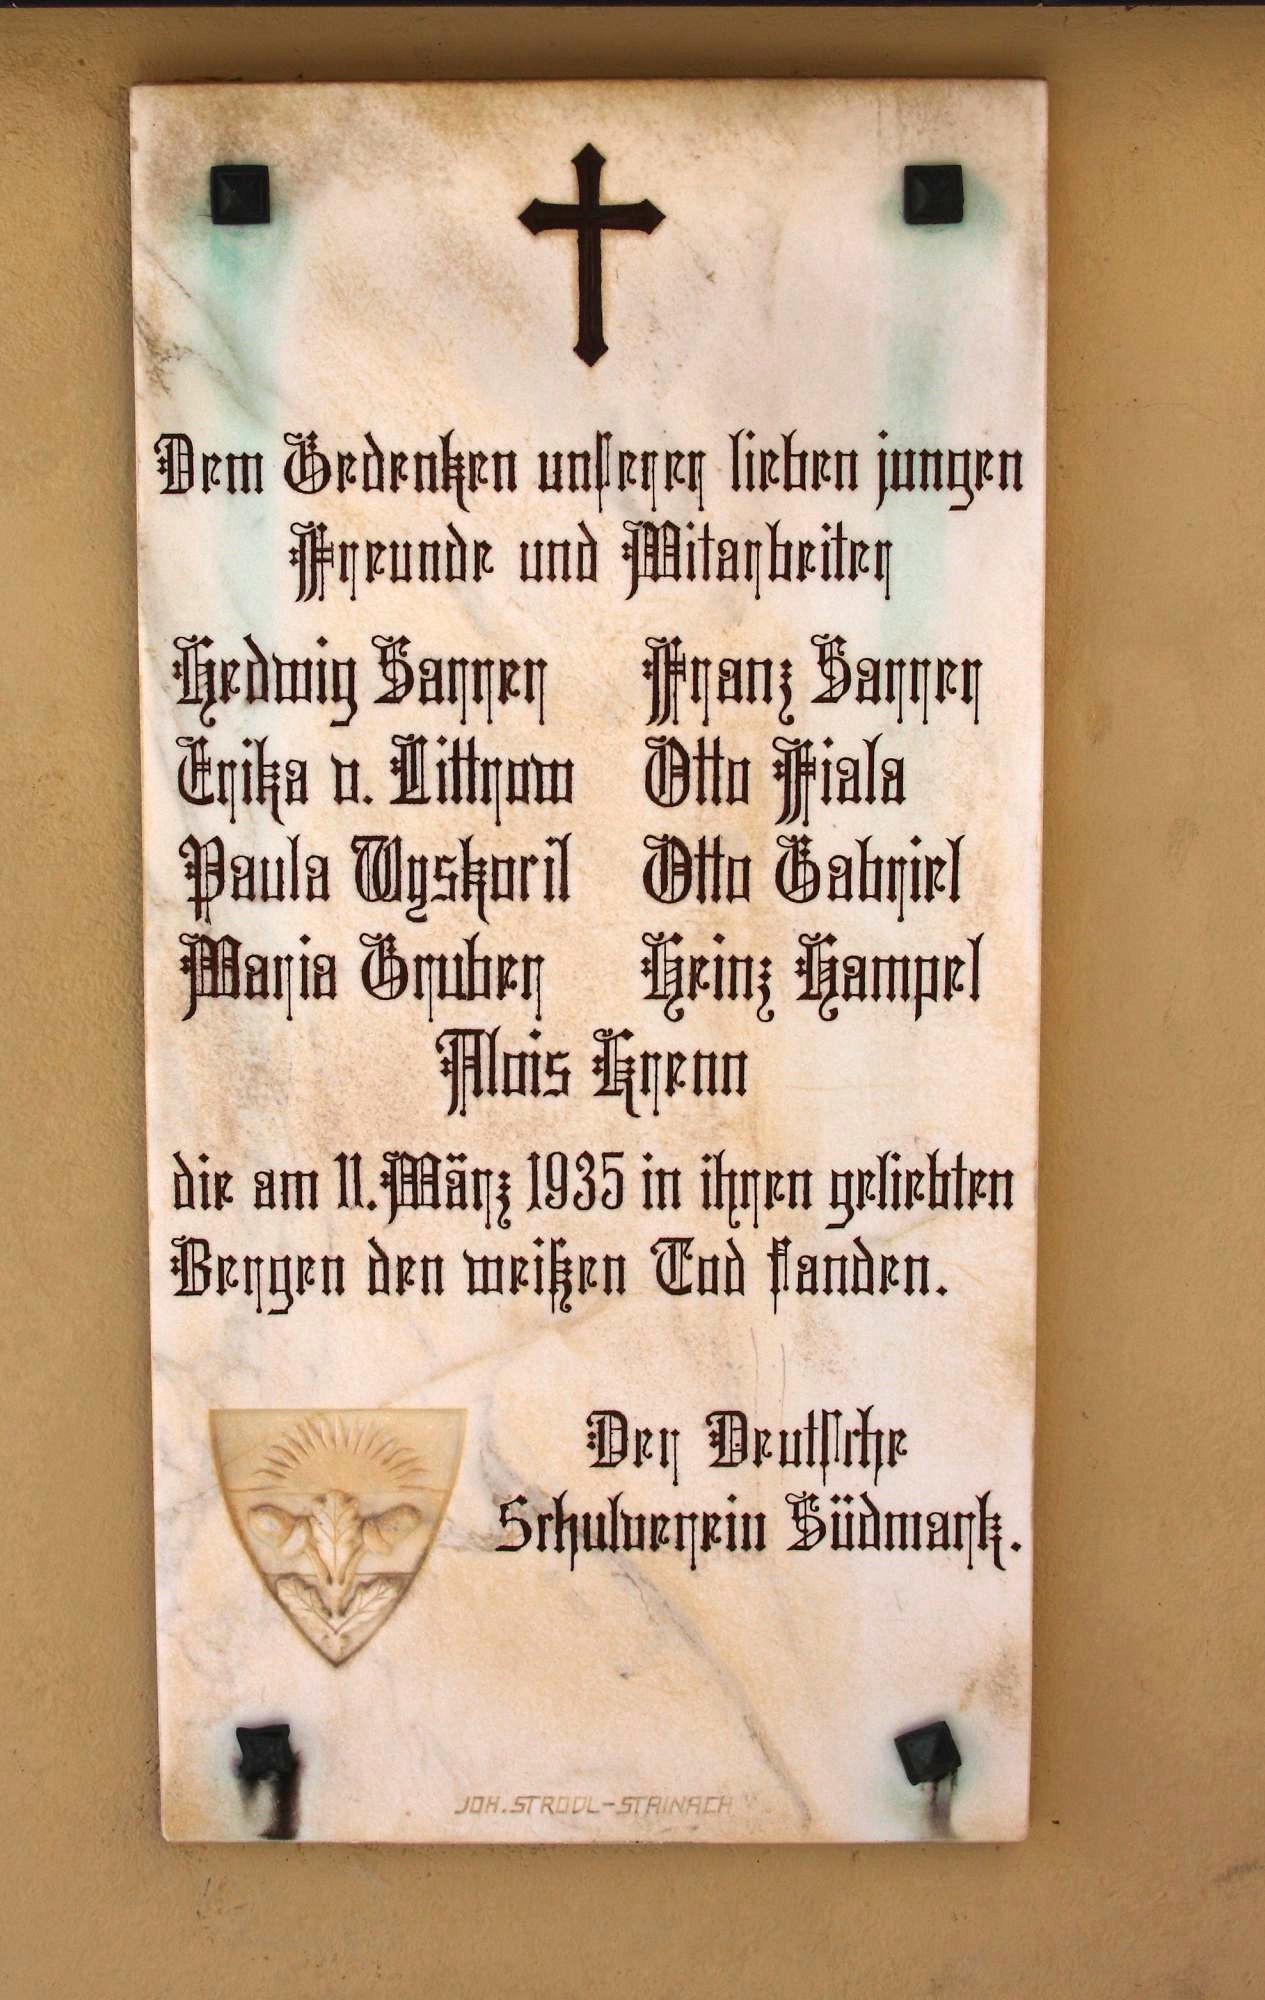 Dem Gedenken unserer lieben jungen
Freunde und Mitarbeiter
Hedwig Sarrer Franz Sarrer
Erika v. Littrow Otto Fiala
Paula Wyskocil Otto Gabriel
Maria Gruber Heinz Hampel
Alois Krenn
die am 11. März 1935 in ihren geliebten
Bergen den weißen Tod fanden.
Der Deutsche
Schulverein Südmark.
JOH. STRODL-STAINACH